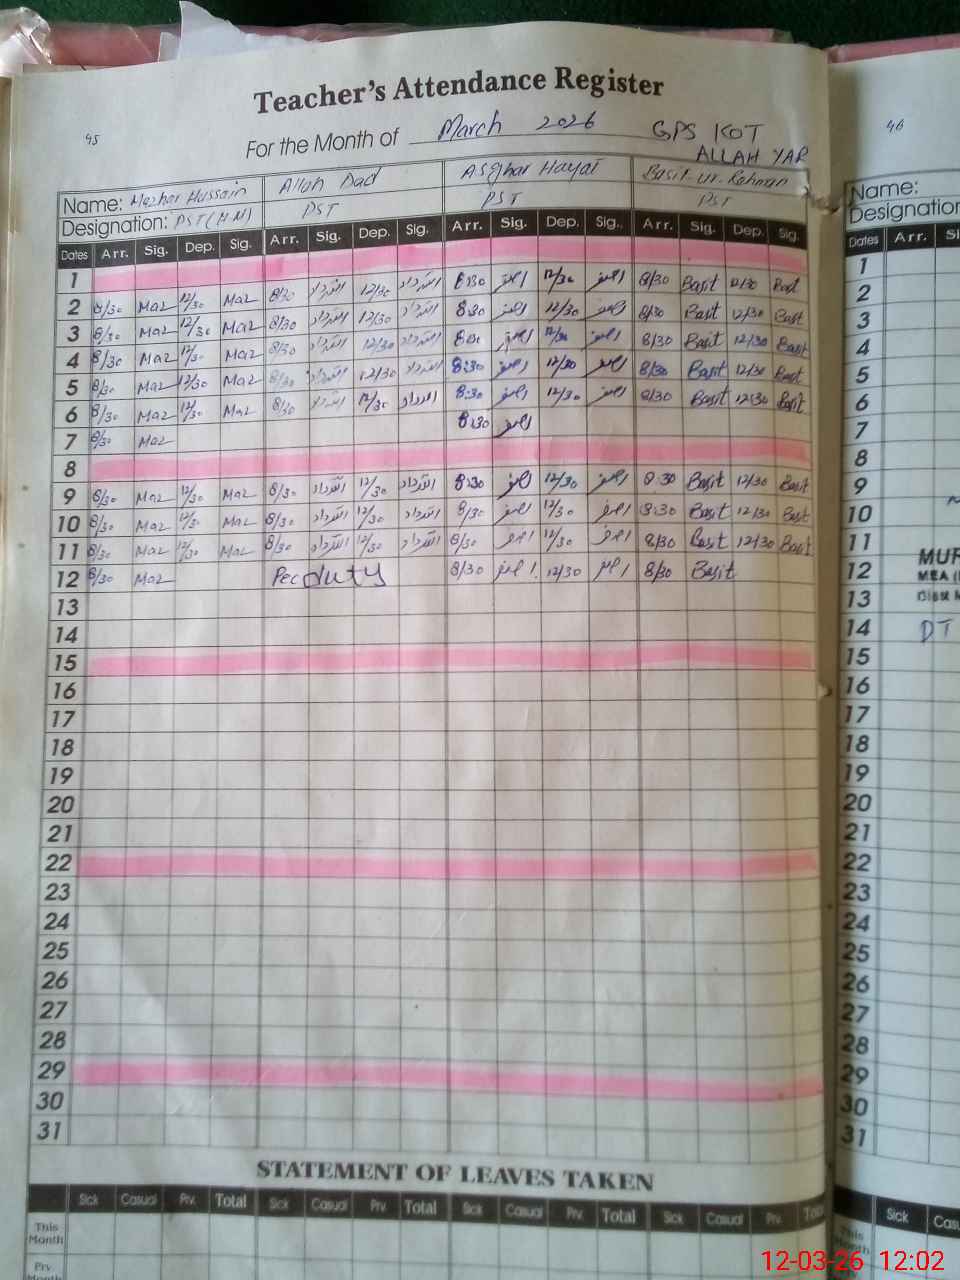 Teacher's Attendance Register
45
For the Month of March 2026 GPS KOT
ALLAH YAR
46
Name: Mazhar Hussain Allah Dad Asghar Hayat Basit-ur-Rehman
Designation: PST (H.N) PST PST PST
Dates Arr. Sig. Dep. Sig. Arr. Sig. Dep. Sig. Arr. Sig. Dep. Sig. Arr. Sig. Dep. Sig.
1
2 8/30 Maz 12/30 Maz 8/30 اللہ داد 12/30 اللہ داد 8:30 اصغر 12/30 اصغر 8/30 Basit 12/30 Basit
3 8/30 Maz 12/30 Maz 8/30 اللہ داد 12/30 اللہ داد 8:30 اصغر 12/30 اصغر 8/30 Basit 12/30 Basit
4 8/30 Maz 12/30 Maz 8/30 اللہ داد 12/30 اللہ داد 8:30 اصغر 12/30 اصغر 8/30 Basit 12/30 Basit
5 8/30 Maz 12/30 Maz 8/30 اللہ داد 12/30 اللہ داد 8:30 اصغر 12/30 اصغر 8/30 Basit 12/30 Basit
6 8/30 Maz 12/30 Maz 8/30 اللہ داد 12/30 اللہ داد 8:30 اصغر 12/30 اصغر 8/30 Basit 12:30 Basit
7 8/30 Maz 8:30 اصغر
8
9 8/30 Maz 12/30 Maz 8/30 اللہ داد 12/30 اللہ داد 8:30 اصغر 12/30 اصغر 8:30 Basit 12/30 Basit
10 8/30 Maz 12/30 Maz 8/30 اللہ داد 12/30 اللہ داد 8/30 اصغر 12/30 اصغر 8:30 Basit 12/30 Basit
11 8/30 Maz 12/30 Maz 8/30 اللہ داد 12/30 اللہ داد 8/30 اصغر 12/30 اصغر 8/30 Basit 12/30 Basit
12 8/30 Maz Pec duty 8/30 اصغر 12/30 اصغر 8/30 Basit
13
14
15
16
17
18
19
20
21
22
23
24
25
26
27
28
29
30
31
STATEMENT OF LEAVES TAKEN
Sick Casual Prv. Total Sick Casual Prv. Total Sick Casual Prv. Total Sick Casual Prv.
This Month
Prv. Month
Name:
Designation
Dates Arr.
1
2
3
4
5
6
7
8
9
10
11
12
13
14 DT
15
16
17
18
19
20
21
22
23
24
25
26
27
28
29
30
31
MEA
Sick
This Month
Prv.
12-03-26 12:02